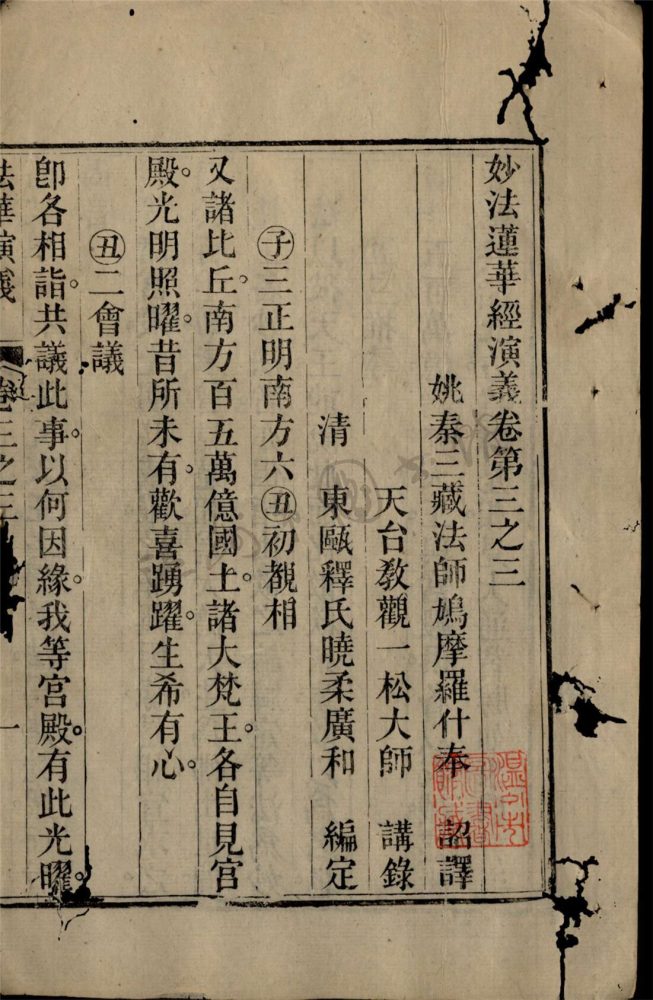 妙法蓮華經演義卷第三之三
姚秦三藏法師鳩摩羅什奉 詔譯
天台敎觀一松大師 講錄
清 東甌釋氏曉柔廣和 編定
㊀子三正明南方六丑初覩相
又諸比丘。南方百五萬億國土。諸大梵王。各自見宮
殿。光明照曜。昔所未有。歡喜踴躍。生希有心。
丑二會議
卽各相詣。共議此事。以何因緣。我等宮殿。有此光曜。
法華演義 卷三之三 一